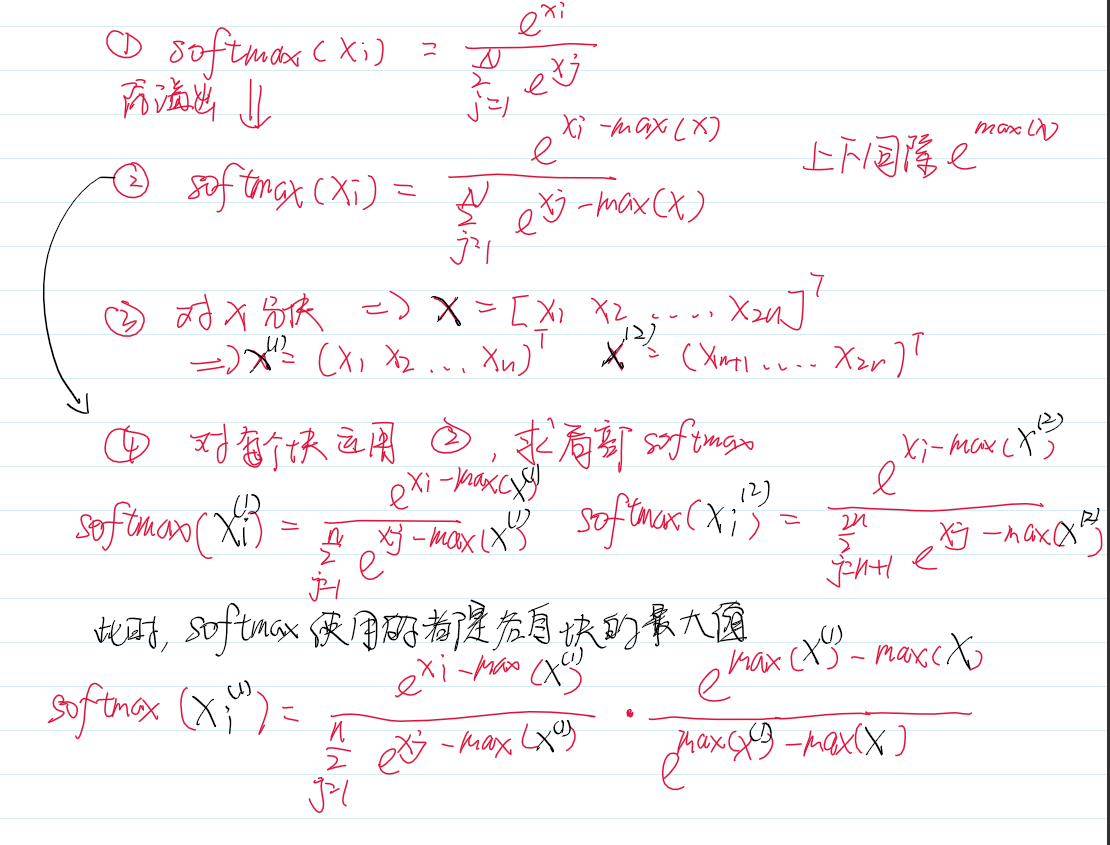 ① softmax(xi) = e^{xi} / Σ_{j=1}^{N} e^{xj}
防溢出 ⇓
② softmax(xi) = e^{xi-max(x)} / Σ_{j=1}^{N} e^{xj-max(x)} 上下同除 e^{max(x)}
③ 对 x 分块 => X = [x1 x2 .... x2n]^T
=> X^{(1)} = (x1 x2 ... xn)^T X^{(2)} = (xn+1 .... x2n)^T
④ 对每个块运用 ②, 求局部 softmax
softmax(xi^{(1)}) = e^{xi-max(x^{(1)})} / Σ_{j=1}^{n} e^{xj-max(x^{(1)})} softmax(xi^{(2)}) = e^{xi-max(x^{(2)})} / Σ_{j=n+1}^{2n} e^{xj-max(x^{(2)})}
此时, softmax 使用的都是各自块的最大值
softmax(xi^{(1)}) = e^{xi-max(x^{(1)})} / Σ_{j=1}^{n} e^{xj-max(x^{(1)})} · e^{max(x^{(1)})-max(x)} / e^{max(x^{(1)})-max(x)}